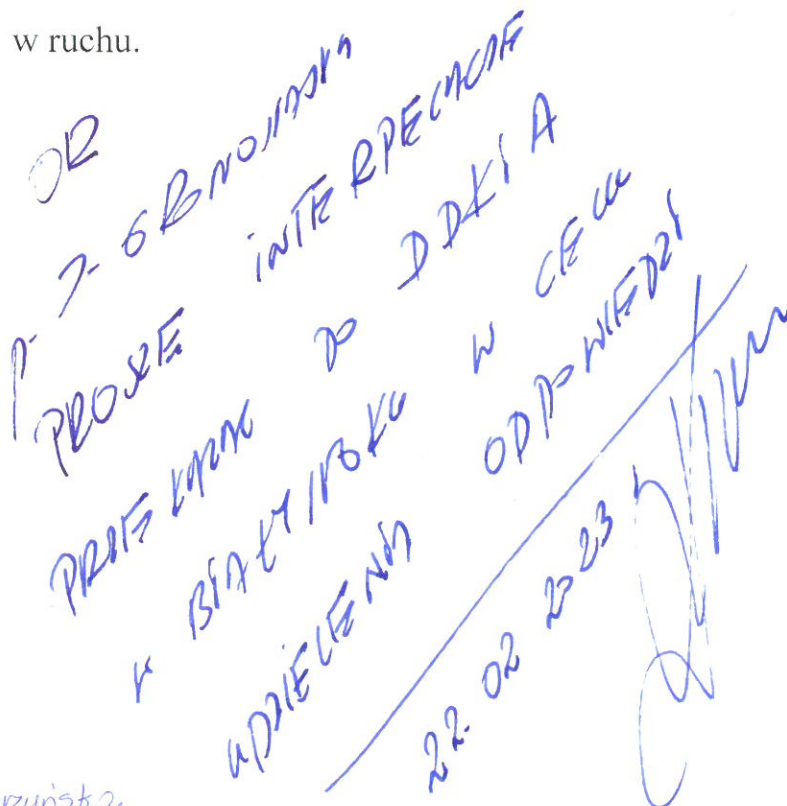 w ruchu.
OR
P. J. GRONOWSKA
PROSZĘ INTERPELACJĘ
PRZEKAZAĆ DO DDKIA
W BIAŁYMSTOKU W CELU
UDZIELENIA ODPOWIEDZI
22.02 2023